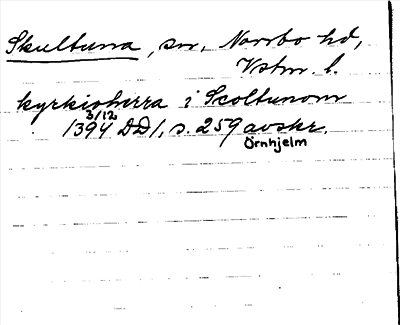 Skultuna, sn, Norrbo hd,
Vstm. l.
kyrkioherra i Scoltunom
3/12
1394 DD1, s. 259 avskr.
Örnhjelm